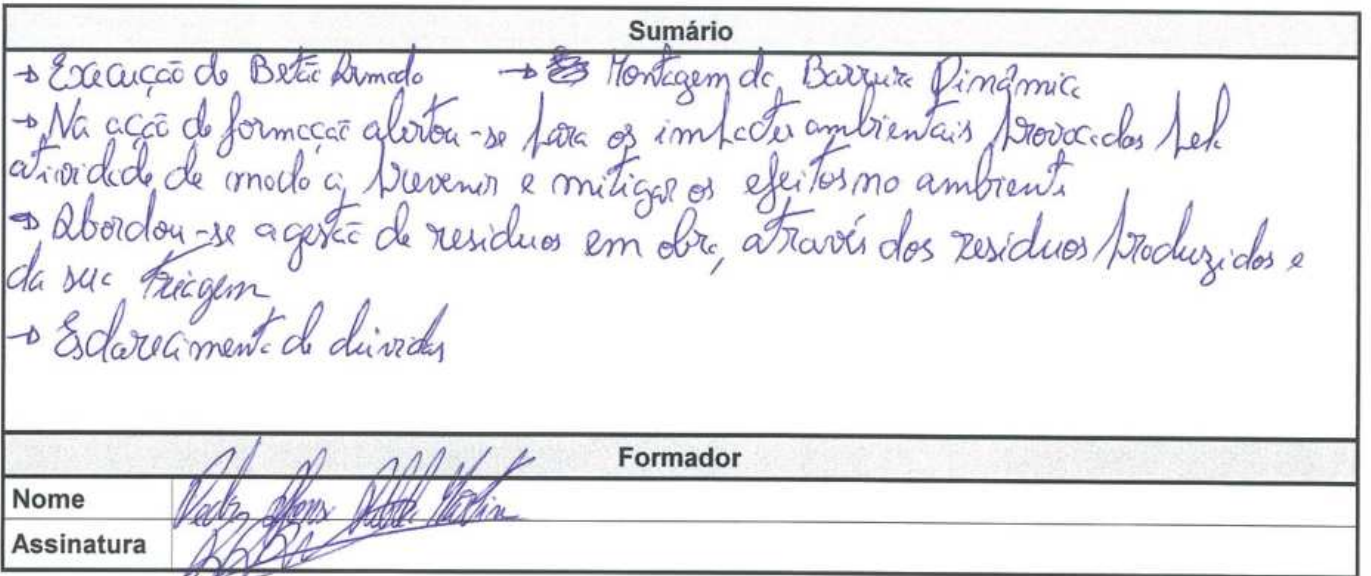 Sumário
→ Execução de Betão Armado → Montagem da Barreira Dinâmica
→ Na acção de formação alertou-se para os impactes ambientais provocados pela
atividade de modo a prevenir e mitigar os efeitos no ambiente
→ Abordou-se a gestão de residuos em obra, através dos residuos produzidos e
da sua triagem
→ Esclarecimento de dúvidas
Formador
Nome Pedro
Assinatura